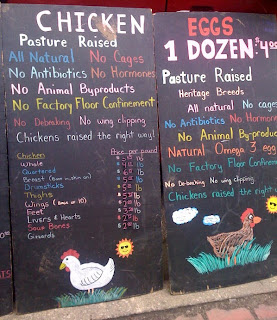 CHICKEN
Pasture Raised
All Natural No Cages
No Antibiotics No Hormones
No Animal Byproducts
No Factory Floor Confinement
No Debeaking No wing clipping
Chickens raised the right way!
Chicken Price per pound
Whole
Quartered
Breast
Drumsticks
Thighs
Wings
Feet
Livers & Hearts
Soup Bones
Gizzards
EGGS
1 DOZEN
Pasture Raised
Heritage Breeds
All natural No cages
No Antibiotics No Hormone
No Animal Byprodu
Natural Omega 3 egg
No Factory Floor Confinem
No Debeaking No wing clipping
Chickens raised the right